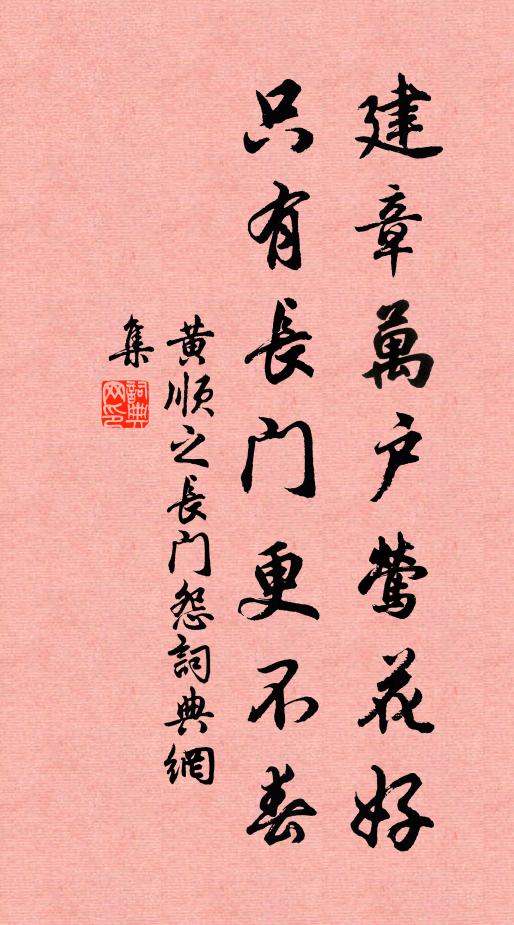 建章萬户鶯花好
只有長门更不春
黄顺之長门怨詞典網
集
詞典
网印